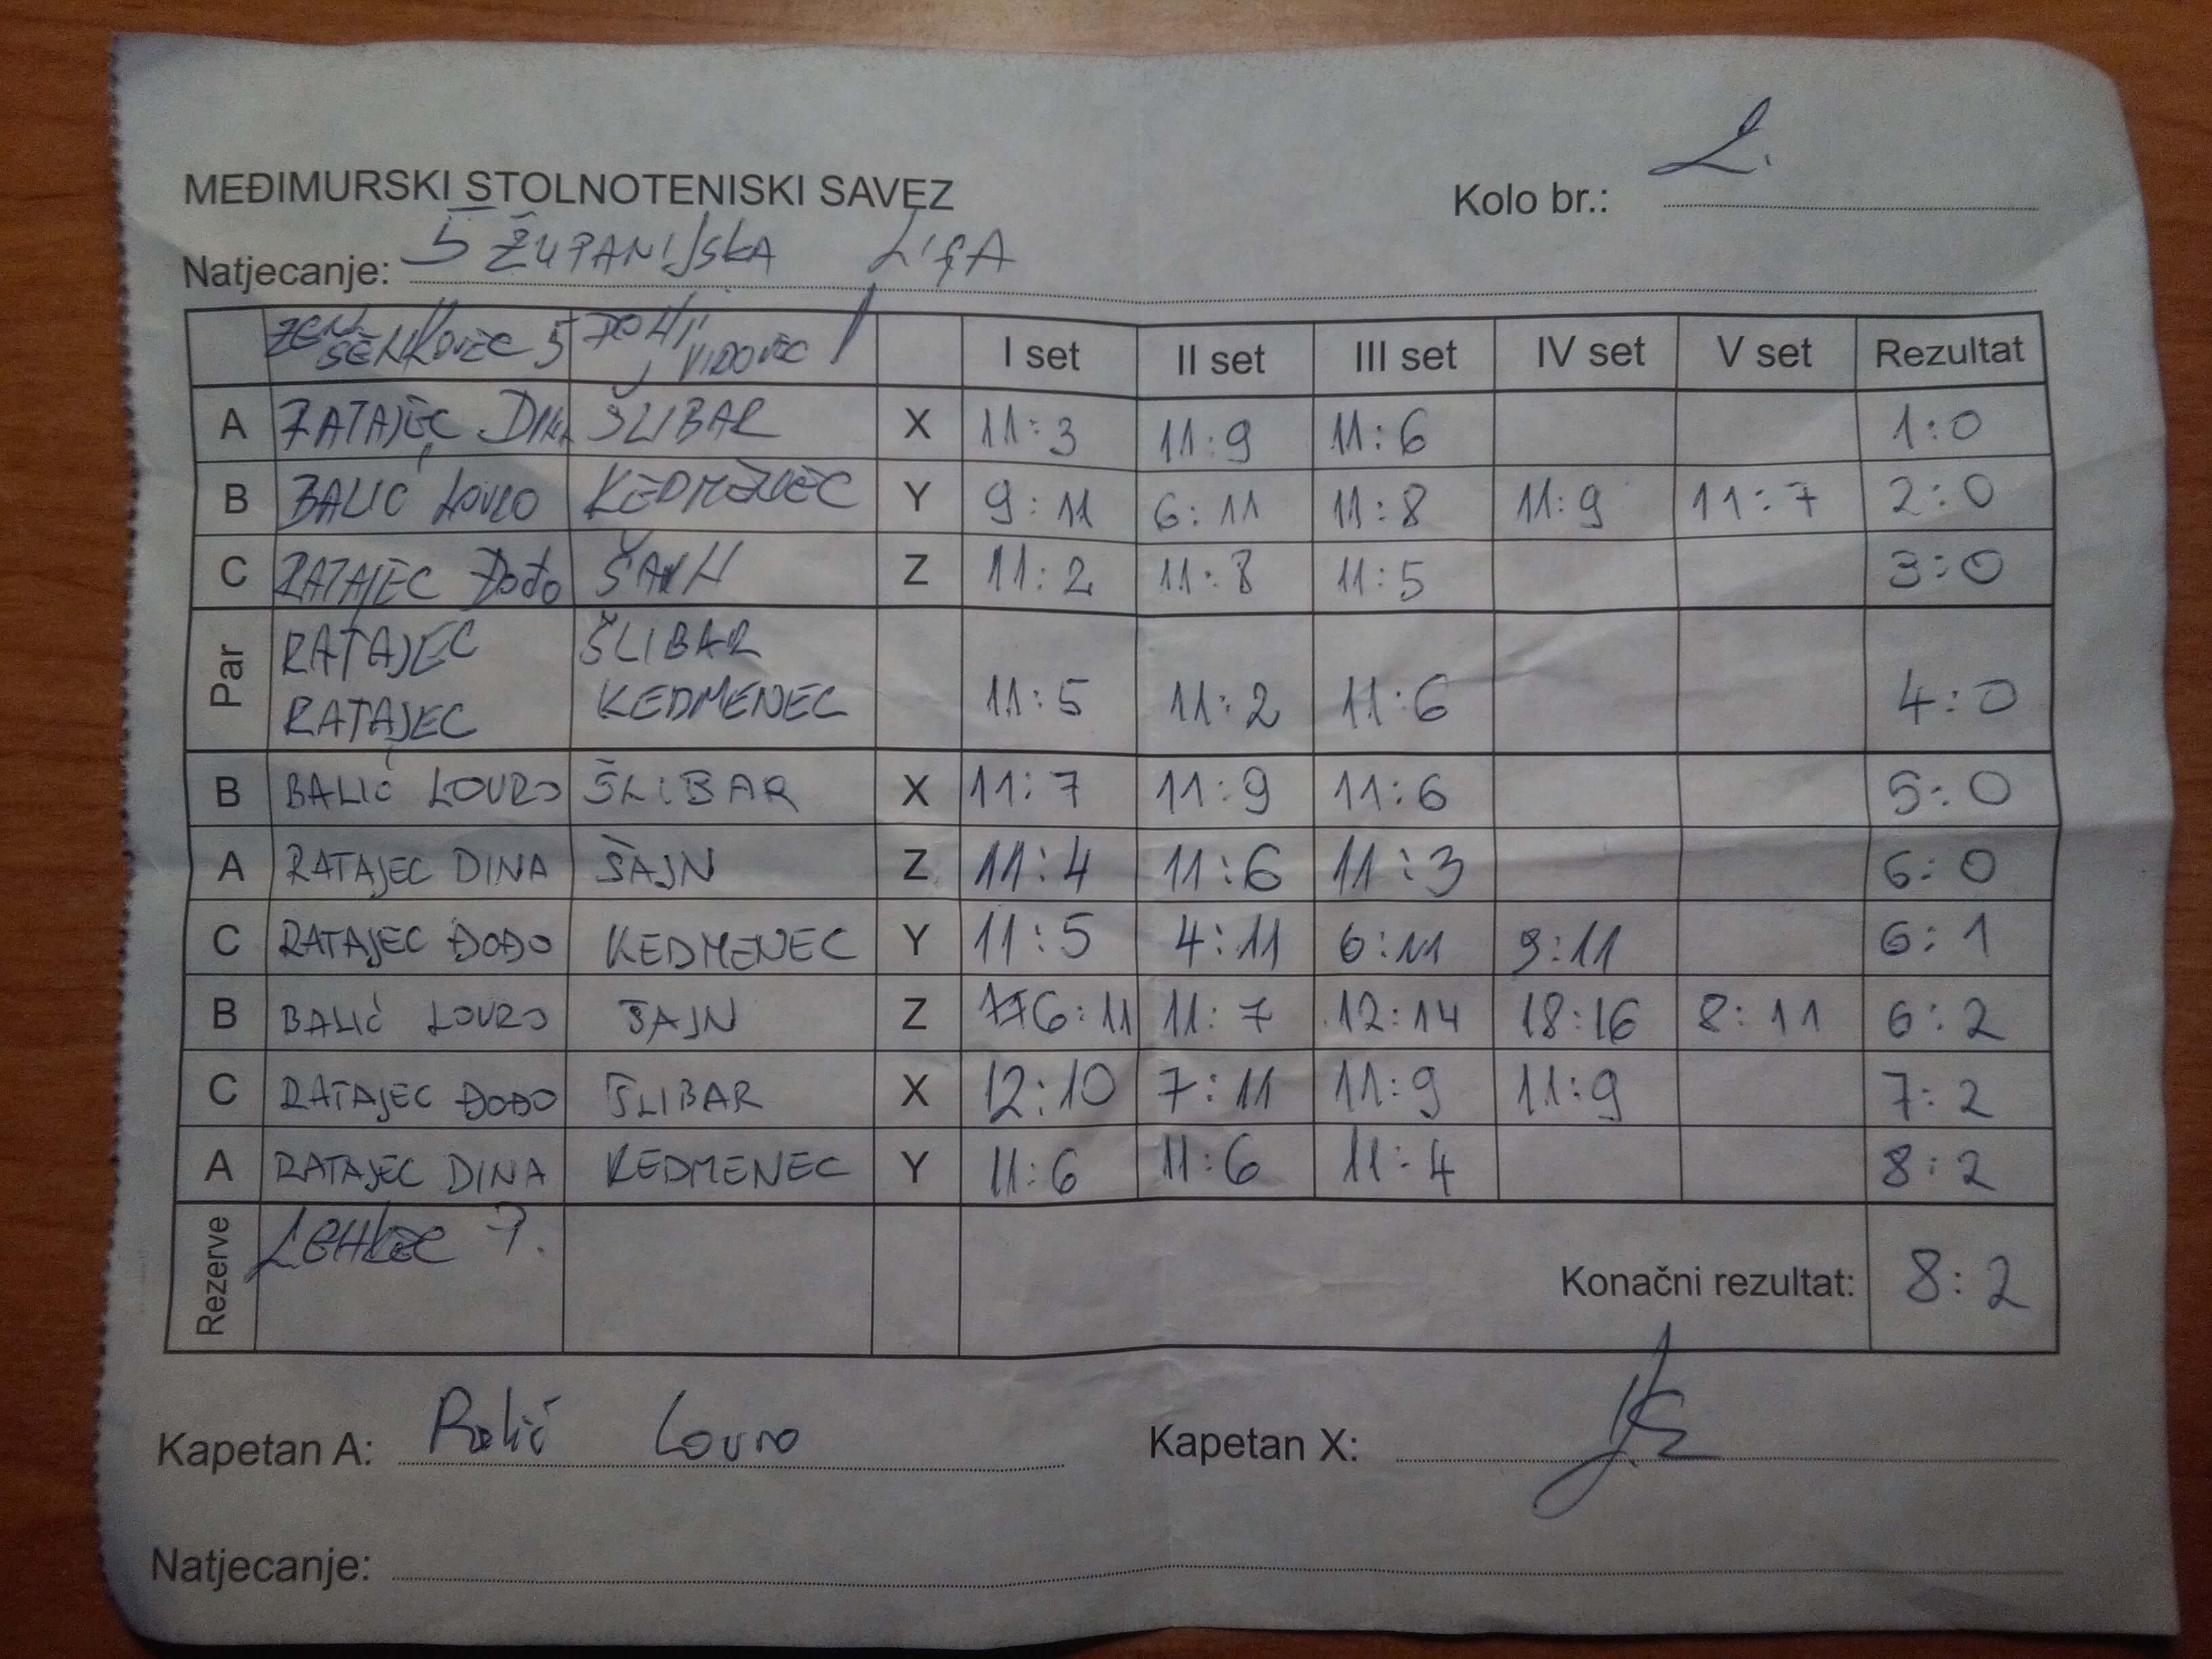 MEĐIMURSKI STOLNOTENISKI SAVEZ Kolo br.: 2.
Natjecanje: 5 ŽUPANIJSKA LIGA
ŠENKOVEC 5 DONJI VIDOVEC I set II set III set IV set V set Rezultat
A RATAJEC DINA ŠLIBAR X 11:3 11:9 11:6 1:0
B BALIĆ LOVRO KEDMENEC Y 9:11 6:11 11:8 11:9 11:7 2:0
C RATAJEC ĐOĐO ŠAJN Z 11:2 11:8 11:5 3:0
Par RATAJEC ŠLIBAR
RATAJEC KEDMENEC 11:5 11:2 11:6 4:0
B BALIĆ LOVRO ŠLIBAR X 11:7 11:9 11:6 5:0
A RATAJEC DINA ŠAJN Z 11:4 11:6 11:3 6:0
C RATAJEC ĐOĐO KEDMENEC Y 11:5 4:11 6:11 9:11 6:1
B BALIĆ LOVRO ŠAJN Z 6:11 11:7 12:14 18:16 8:11 6:2
C RATAJEC ĐOĐO ŠLIBAR X 12:10 7:11 11:9 11:9 7:2
A RATAJEC DINA KEDMENEC Y 11:6 11:6 11:4 8:2
Rezerve Konačni rezultat: 8:2
Kapetan A: Balić Lovro Kapetan X:
Natjecanje: